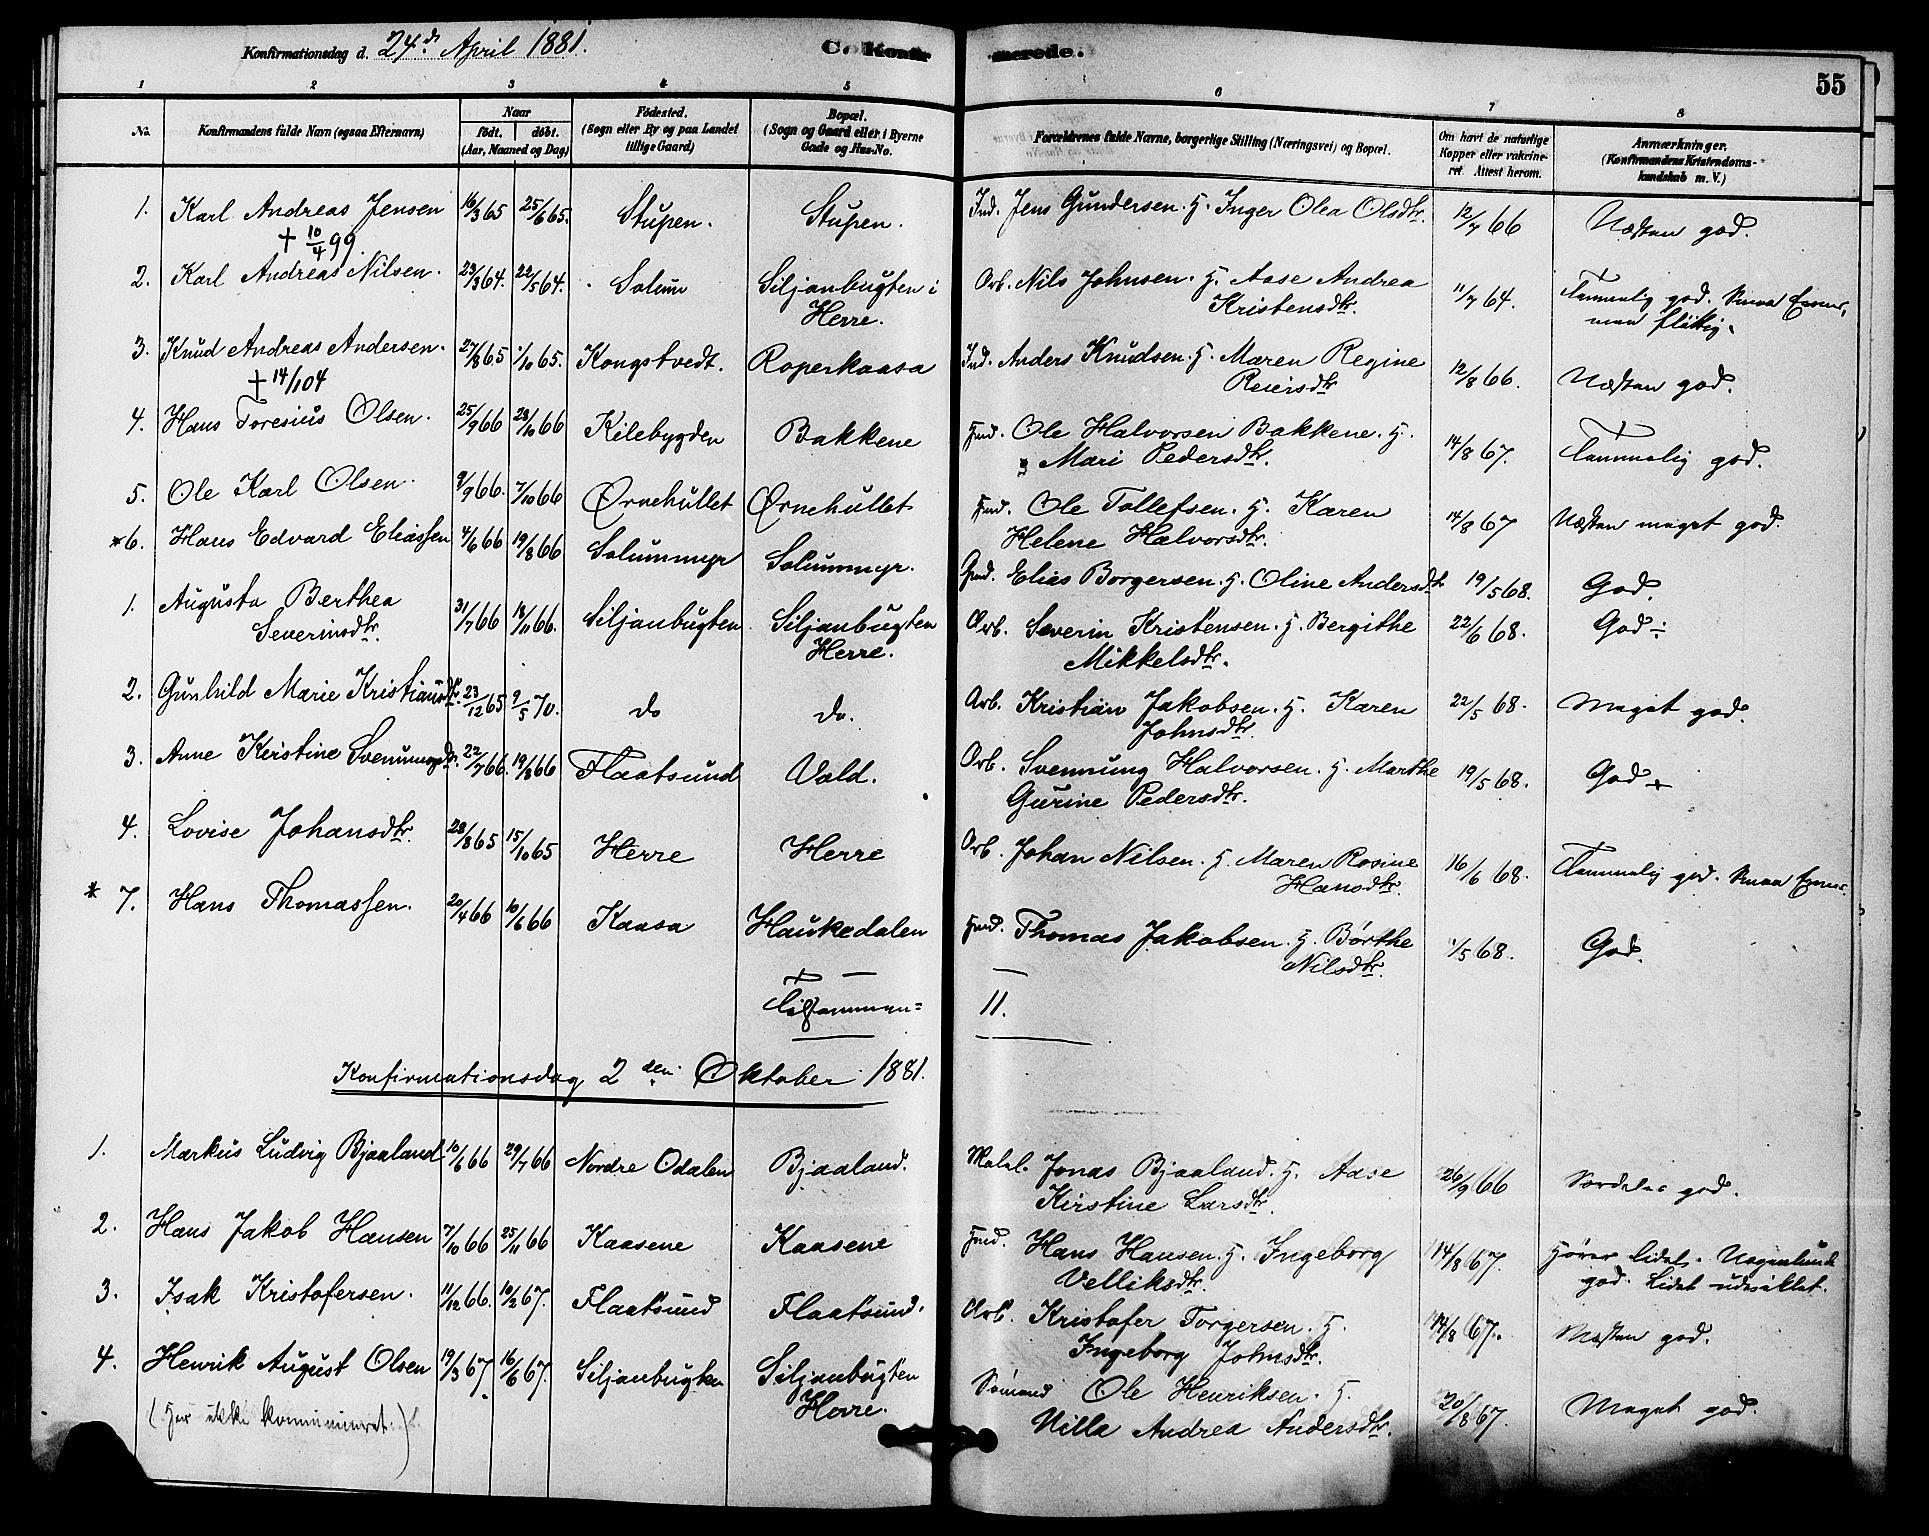 Konfirmationsdag d. 24d April 1881.
C. Konfirmerede.
55
1 2 3 4 5 6 7 8
No.
Konfirmandens fulde Navn (ogsaa Efternavn)
Naar
født. døbt.
(Aar, Maaned og Dag)
Fødested.
(Sogn eller By og paa Landet
tillige Gaard)
Bopæl.
(Sogn og Gaard eller i Byerne
Gade og Hus-No.
Forældrenes fulde Navne, borgerlige Stilling (Næringsvei) og Bopæl.
Om havt de naturlige
Kopper eller vakcine-
ret. Attest herom.
Anmærkninger.
(Konfirmandens Kristendoms-
kundskab m. V.)
1. Karl Andreas Jensen 16/3 65 25/6 65. Stupen. Stupen. Ind. Jens Gundersen. H. Inger Olea Olsdtr. 12/7 66 Næsten god.
+ 10/4 99.
2. Karl Andreas Nilsen. 23/3 64. 22/5 64. Solum Siljanbugten i Arb. Nils Johnsen. H. Aase Andrea 11/7 64. Temmelig god. Smaa Evner,
Herre. Kristensdtr. men flittig.
3. Knud Andreas Andersen. 27/8 65 1/10 65. Kongstvedt. Roperkaasa Ind. Anders Knudsen. H. Maren Regine 12/8 66. Næsten god.
+ 14/1 04 Reiersdtr
4. Hans Toresius Olsen. 25/9 66 28/10 66 Kilebygden Bakkene Hmd. Ole Halvorsen Bakkene. H. 14/8 67. Temmelig god.
Mari Pedersdtr.
5. Ole Karl Olsen. 8/9 66. 7/10 66 Ørnehullet Ørnehullet Hmd. Ole Tollefsen. H. Karen 14/8 67 Næsten meget god.
Helene Halvorsdtr.
*6. Hans Edvard Eliassen 4/6 66 19/8 66 Solummyr Solummyr. Gmd. Elias Borgersen. H. Oline Andersdtr 19/5 68. God.
1. Augusta Berthea 31/7 66 18/11 66. Siljanbugten Siljanbugten Arb. Severin Kristensen. H. Bergithe 22/6 68. God ÷
Severinsdtr. Herre. Mikkelsdtr.
2. Gunhild Marie Kristiansdtr. 23/12 65 9/5 70. do do. Arb. Kristian Jakobsen. H. Karen 22/5 68. Meget god.
Johnsdtr.
3. Anne Kirstine Svennungsdtr. 22/7 66. 19/8 66 Flaatsund Vold. Arb. Svennung Halvorsen. H. Marthe 19/5 68. God +
Gurine Pedersdtr.
4. Lovise Johansdtr. 28/8 65 15/10 65 Herre Herre Arb. Johan Nilsen. H. Maren Rosine 16/6 68. Temmelig god. Smaa Evner.
Hansdtr.
* 7. Hans Thomassen. 20/4 66 10/6 66 Kaasa Haukedalen Hmd. Thomas Jakobsen. H. Børthe 1/5 68. God.
Nilsdtr.
Tilsammen = 11.
Konfirmationsdag 2den. Oktober 1881.
1. Markus Ludvig Bjaaland 10/6 66 29/7 66 Nordre Odalen Bjaaland. Jonas Bjaaland. H. Aase 26/9 66 Særdeles god.
Kirstine Larsdtr.
2. Hans Jakob Hansen 7/10 66 25/11 66 Kaasene Kaasene Hmd. Hans Hansen. H. Ingeborg 14/8 67. Hører lidet.
Velliksdtr. god. Lidet udviklet.
3. Isak Kristofersen. 11/12 66. 10/2 67. Flaatsund Flaatsund. Arb. Kristofer Torgersen. H. 14/8 67. Næsten god.
Ingeborg Johnsdtr.
4. Henrik August Olsen 19/3 67. 16/6 67. Siljanbugten Siljanbugten Sømand Ole Henriksen. H. 20/8 67. Meget god.
(Har ikke kommuniceret.) Herre. Nilla Andrea Andersdtr.